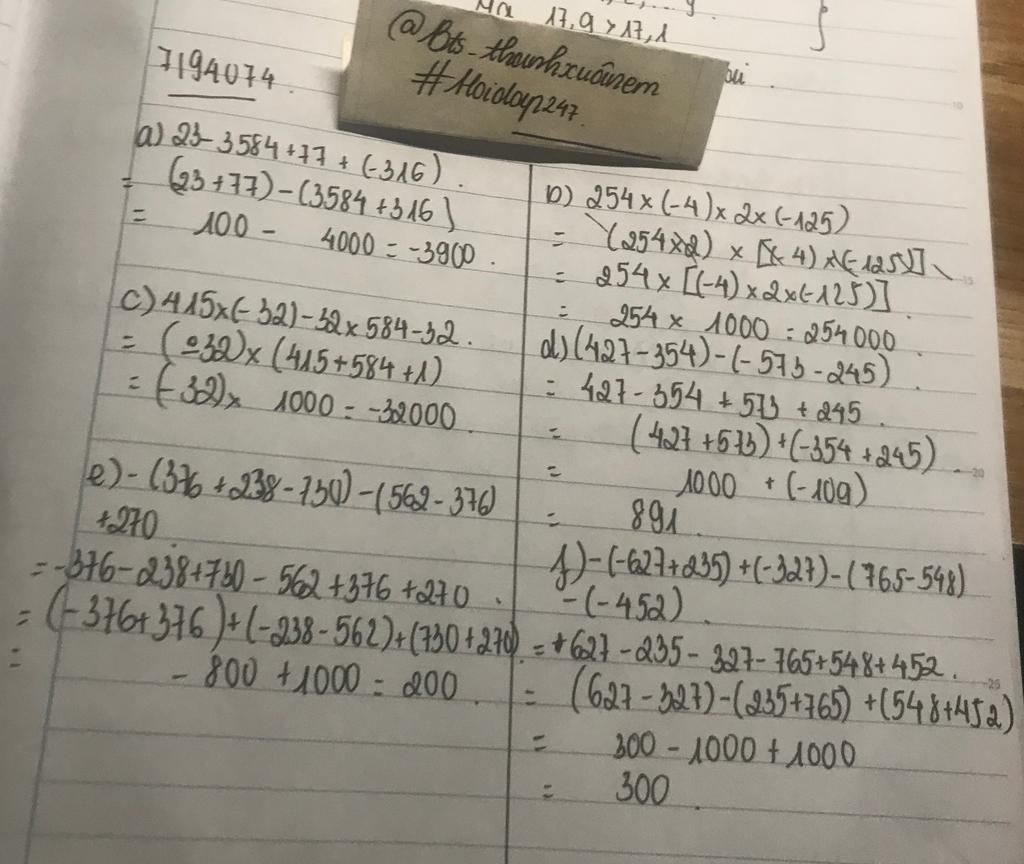 17,9 > 17,1
@Bts_thanhxuânem
#Hoidap247
7194074.
a) 23-3584+77+(-316).
= (23+77)-(3584+316)
= 100 - 4000 = -3900.
c) 415×(-32)-32×584-32.
= (-32)×(415+584+1)
= (-32)× 1000 = -32000
e) -(376+238-730)-(562-376)
+270
= -376-238+730-562+376+270.
= (-376+376)+(-238-562)+(730+270)
= -800+1000 = 200.
b) 254×(-4)×2×(-125)
= (254×2)×[(-4)×(-125)]
= 254×[(-4)×2×(-125)]
= 254 × 1000 = 254000.
d) (427-354)-(-573-245).
= 427-354+573+245.
= (427+573)+(-354+245).
= 1000 + (-109)
= 891.
f) -(-627+235)+(-327)-(765-548)
-(-452).
= +627-235-327-765+548+452.
= (627-327)-(235+765)+(548+452)
= 300-1000+1000
= 300.